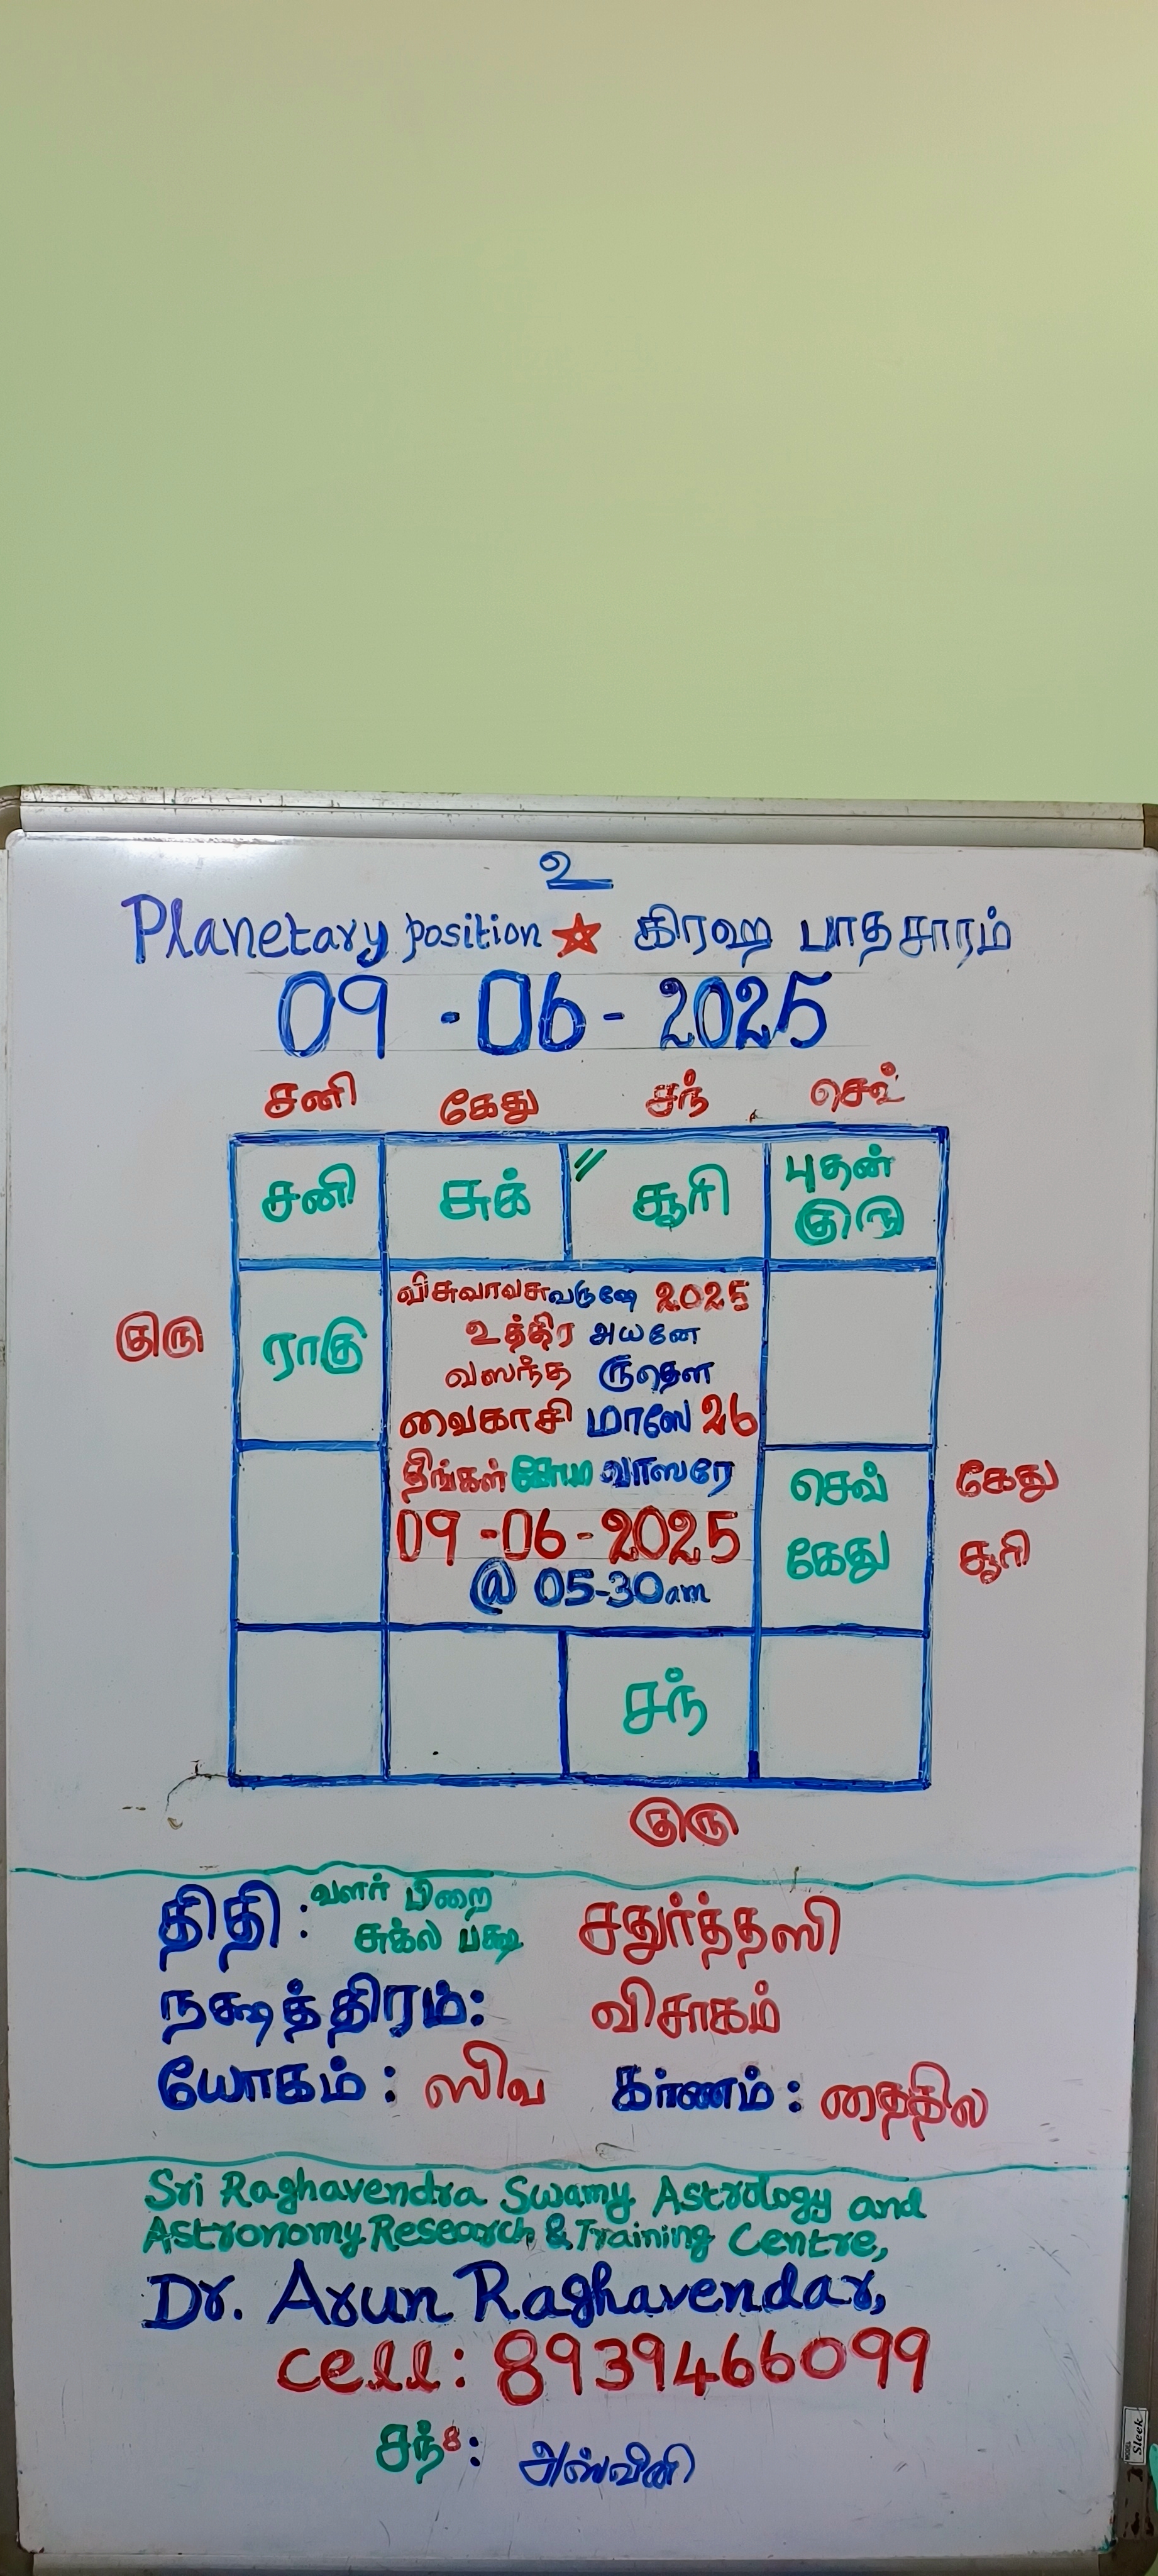 உ
Planetary position ☆ கிரஹ பாதசாரம்
09-06-2025
சனி கேது சந் செவ்
சனி சுக் " சூரி புதன்
குரு
குரு ராகு
விசுவாவசுவருஷே 2025
உத்திர அயனே
வஸந்த ருதௌ
வைகாசி மாஸே 26
திங்கள் சோம வாஸரே
09-06-2025
@ 05-30am
செவ் கேது
கேது சூரி
சந்
குரு
திதி: வளர் பிறை சதுர்த்தஸி
சுக்ல பக்ஷ
நக்ஷத்திரம்: விசாகம்
யோகம்: ஸிவ கர்ணம்: தைதில
Sri Raghavendra Swamy Astrology and
Astronomy Research & Training Centre,
Dr. Arun Raghavendar,
cell: 8939466099
சந்8: அஸ்வினி
Sleek